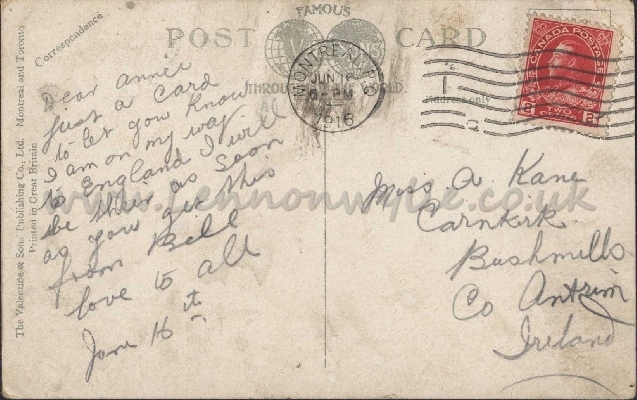 FAMOUS
POST CARD
THROUGHOUT THE WORLD.
Correspondence
Address only
The Valentine & Sons' Publishing Co., Ltd. Montreal and Toronto,
Printed in Great Britain
MONTREAL, P.Q.
JUN 16
PM
1916
CANADA POSTAGE
2 TWO CENTS 2
Dear Annie
just a Card
to let you know
I am on my way
to England I will
be their as soon
as you get this
from Bell
love to all
June 16 th
Miss A. Kane
Carnkirk
Bushmills
Co Antrim
Ireland
www.lennonwylie.co.uk